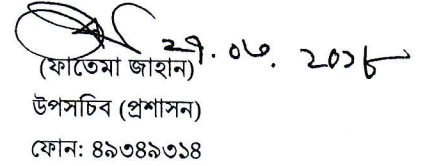 ২৭.০৬.২০১৮
(ফাতেমা জাহান)
উপসচিব (প্রশাসন)
ফোন: ৪৯৩৪৯৩১৪